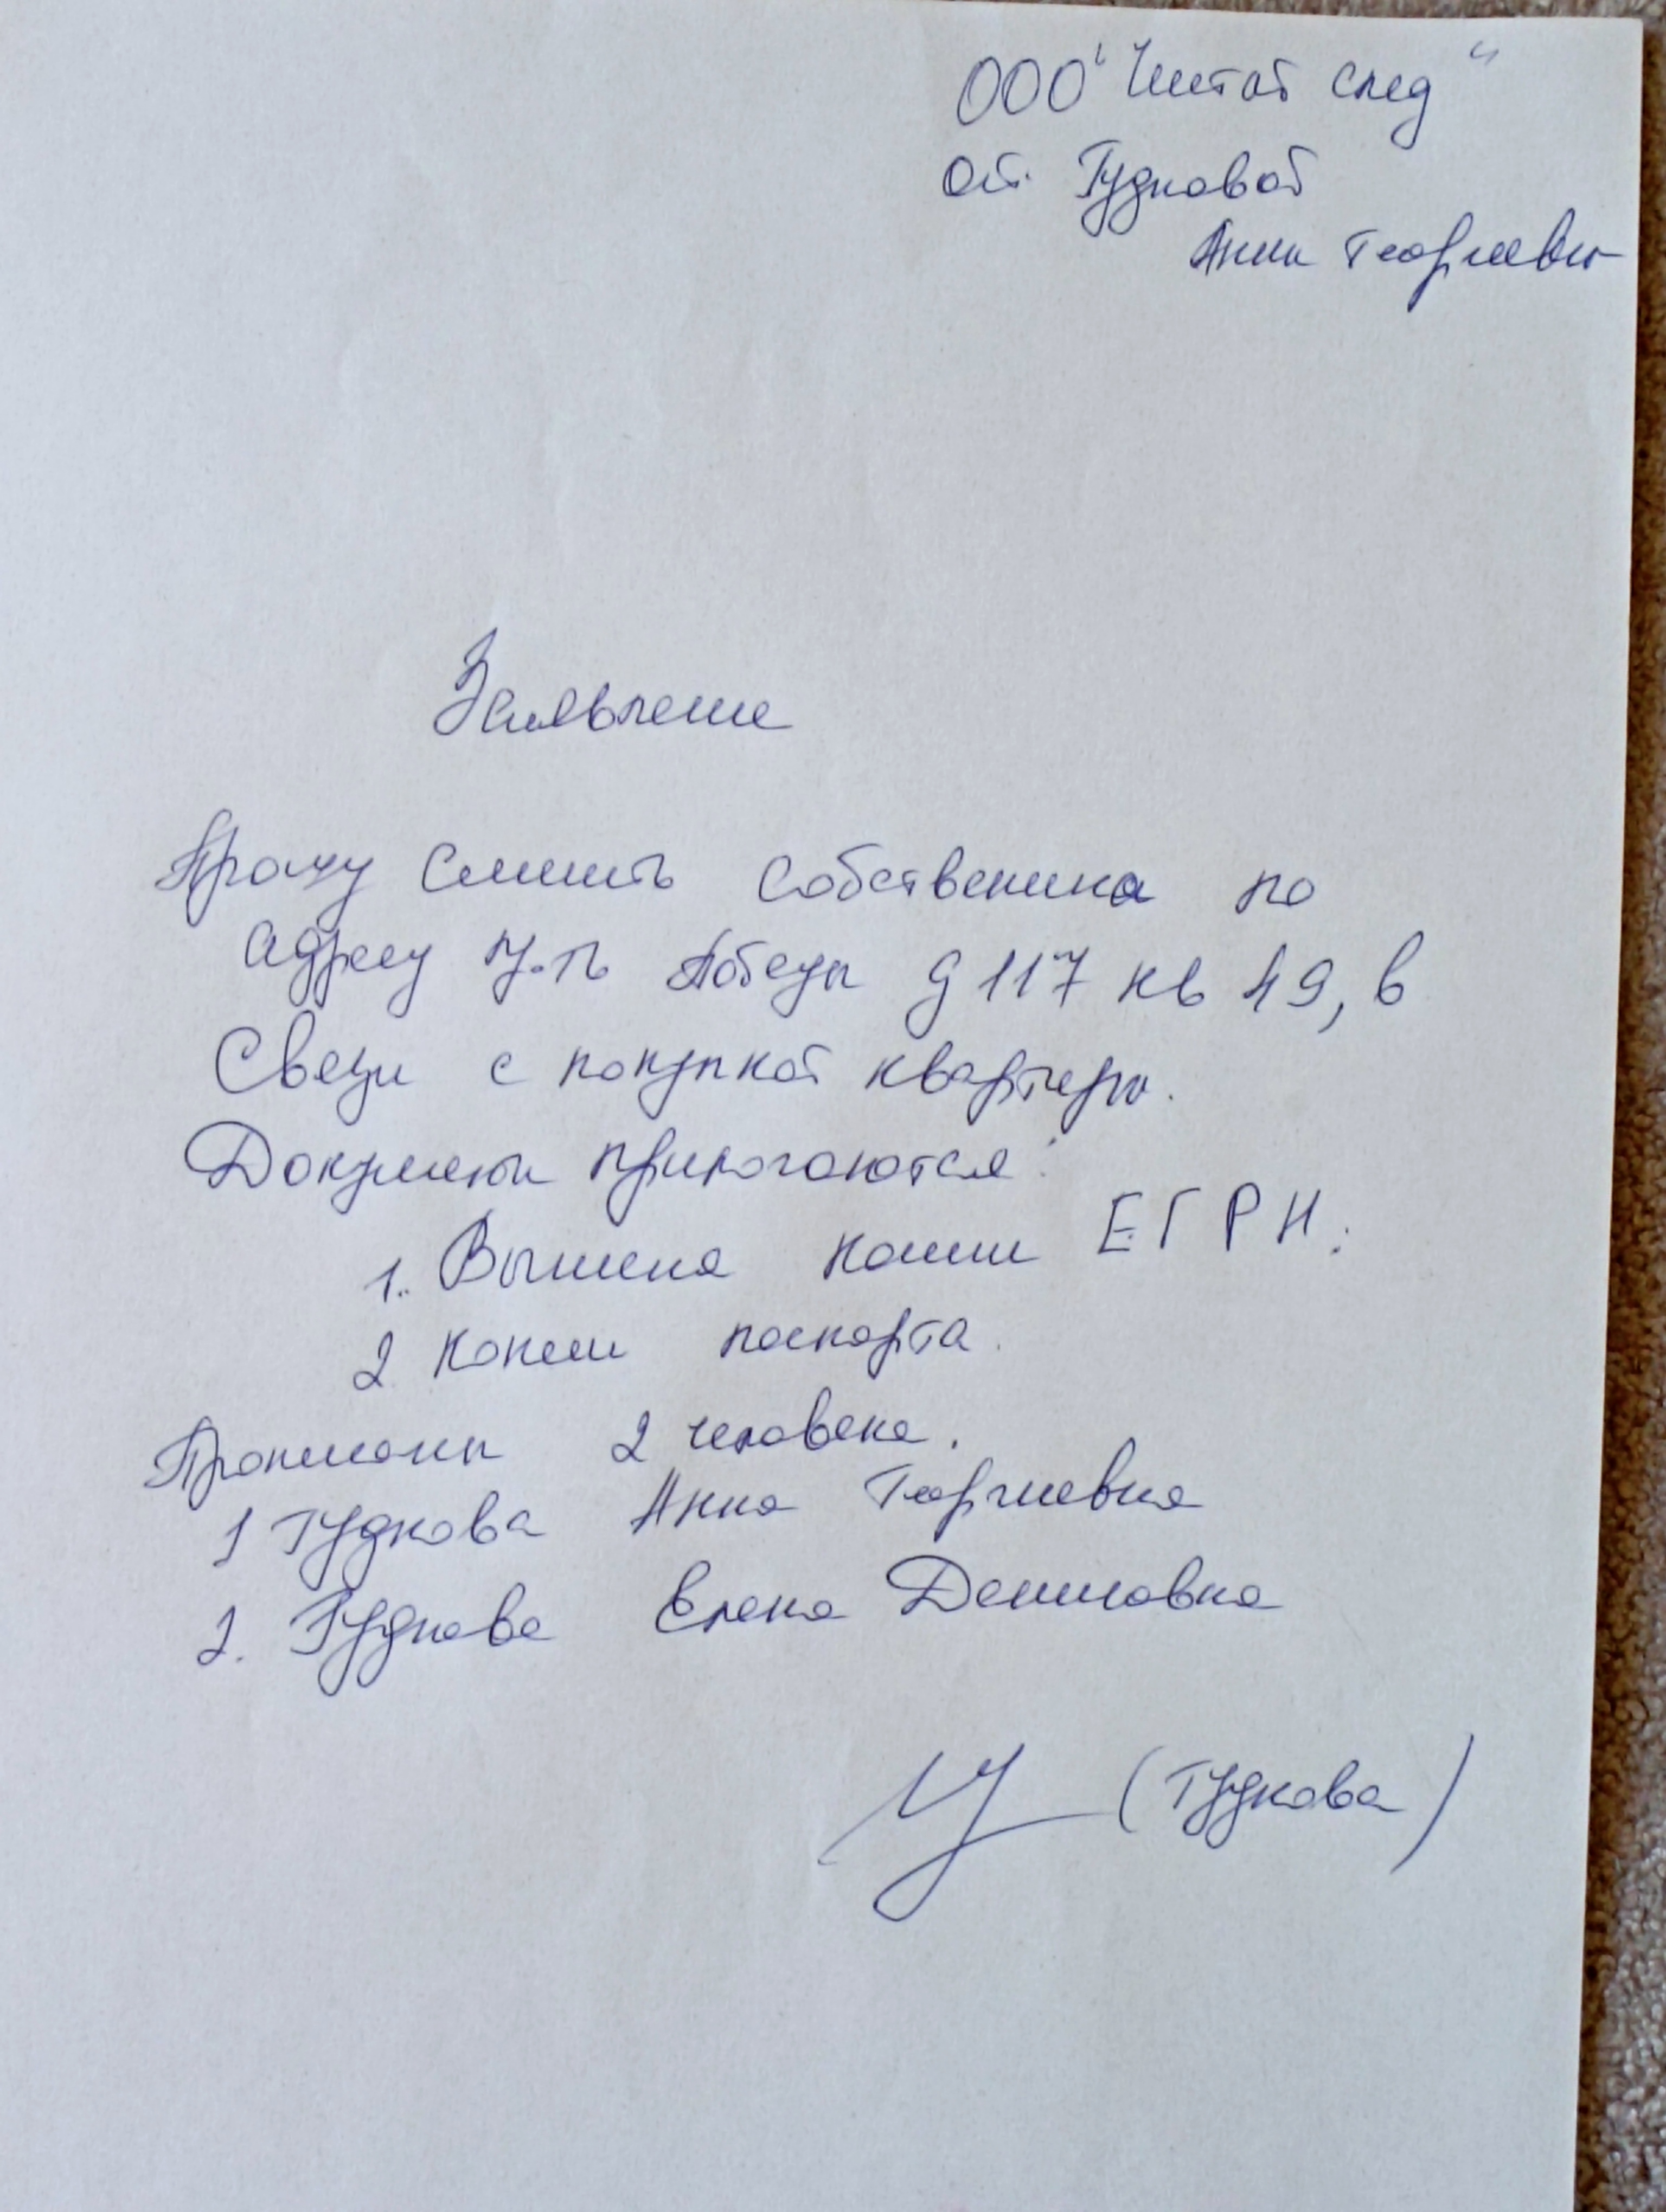 ООО "Чистый след"
от Гудковой
Анны Георгиевны
Заявление
Прошу сменить собственника по
адресу Победы д 117 кв 49, в
Связи с покупкой квартиры.
Документы прилагаются:
1. Выписка копии ЕГРН.
2 Копии паспорта.
Прописаны 2 человека.
1 Гудкова Анна Георгиевна
2. Гудкова Елена Денисовна
(Гудкова)